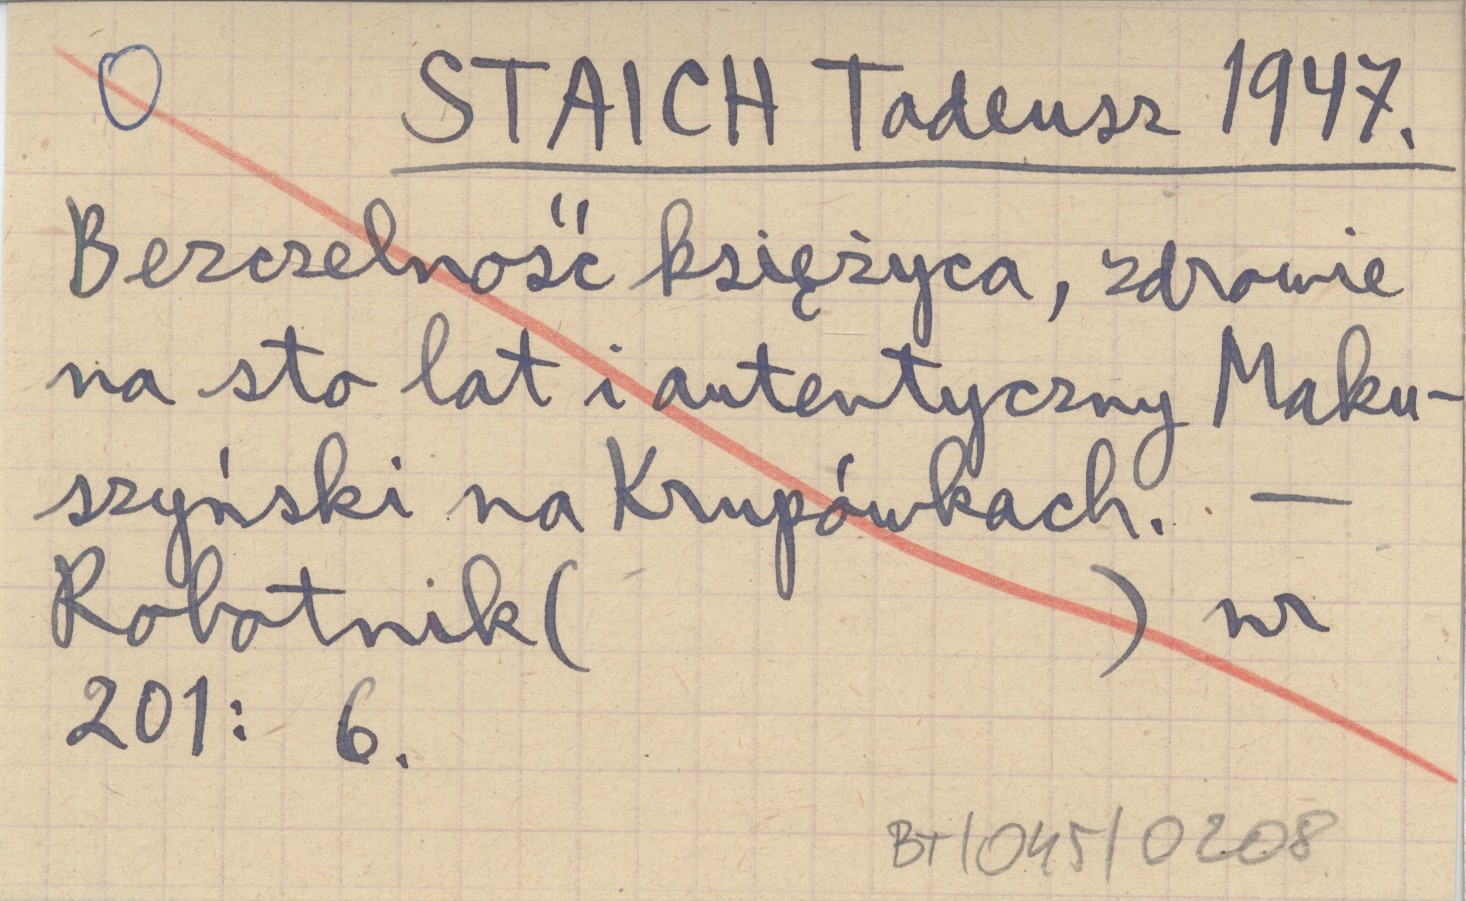 O STAICH Tadeusz 1947.
Bezczelność księżyca, zdrowie
na sto lat i autentyczny Maku-
szyński na Krupówkach. —
Robotnik( ) nr
201: 6.
BT/045/0208